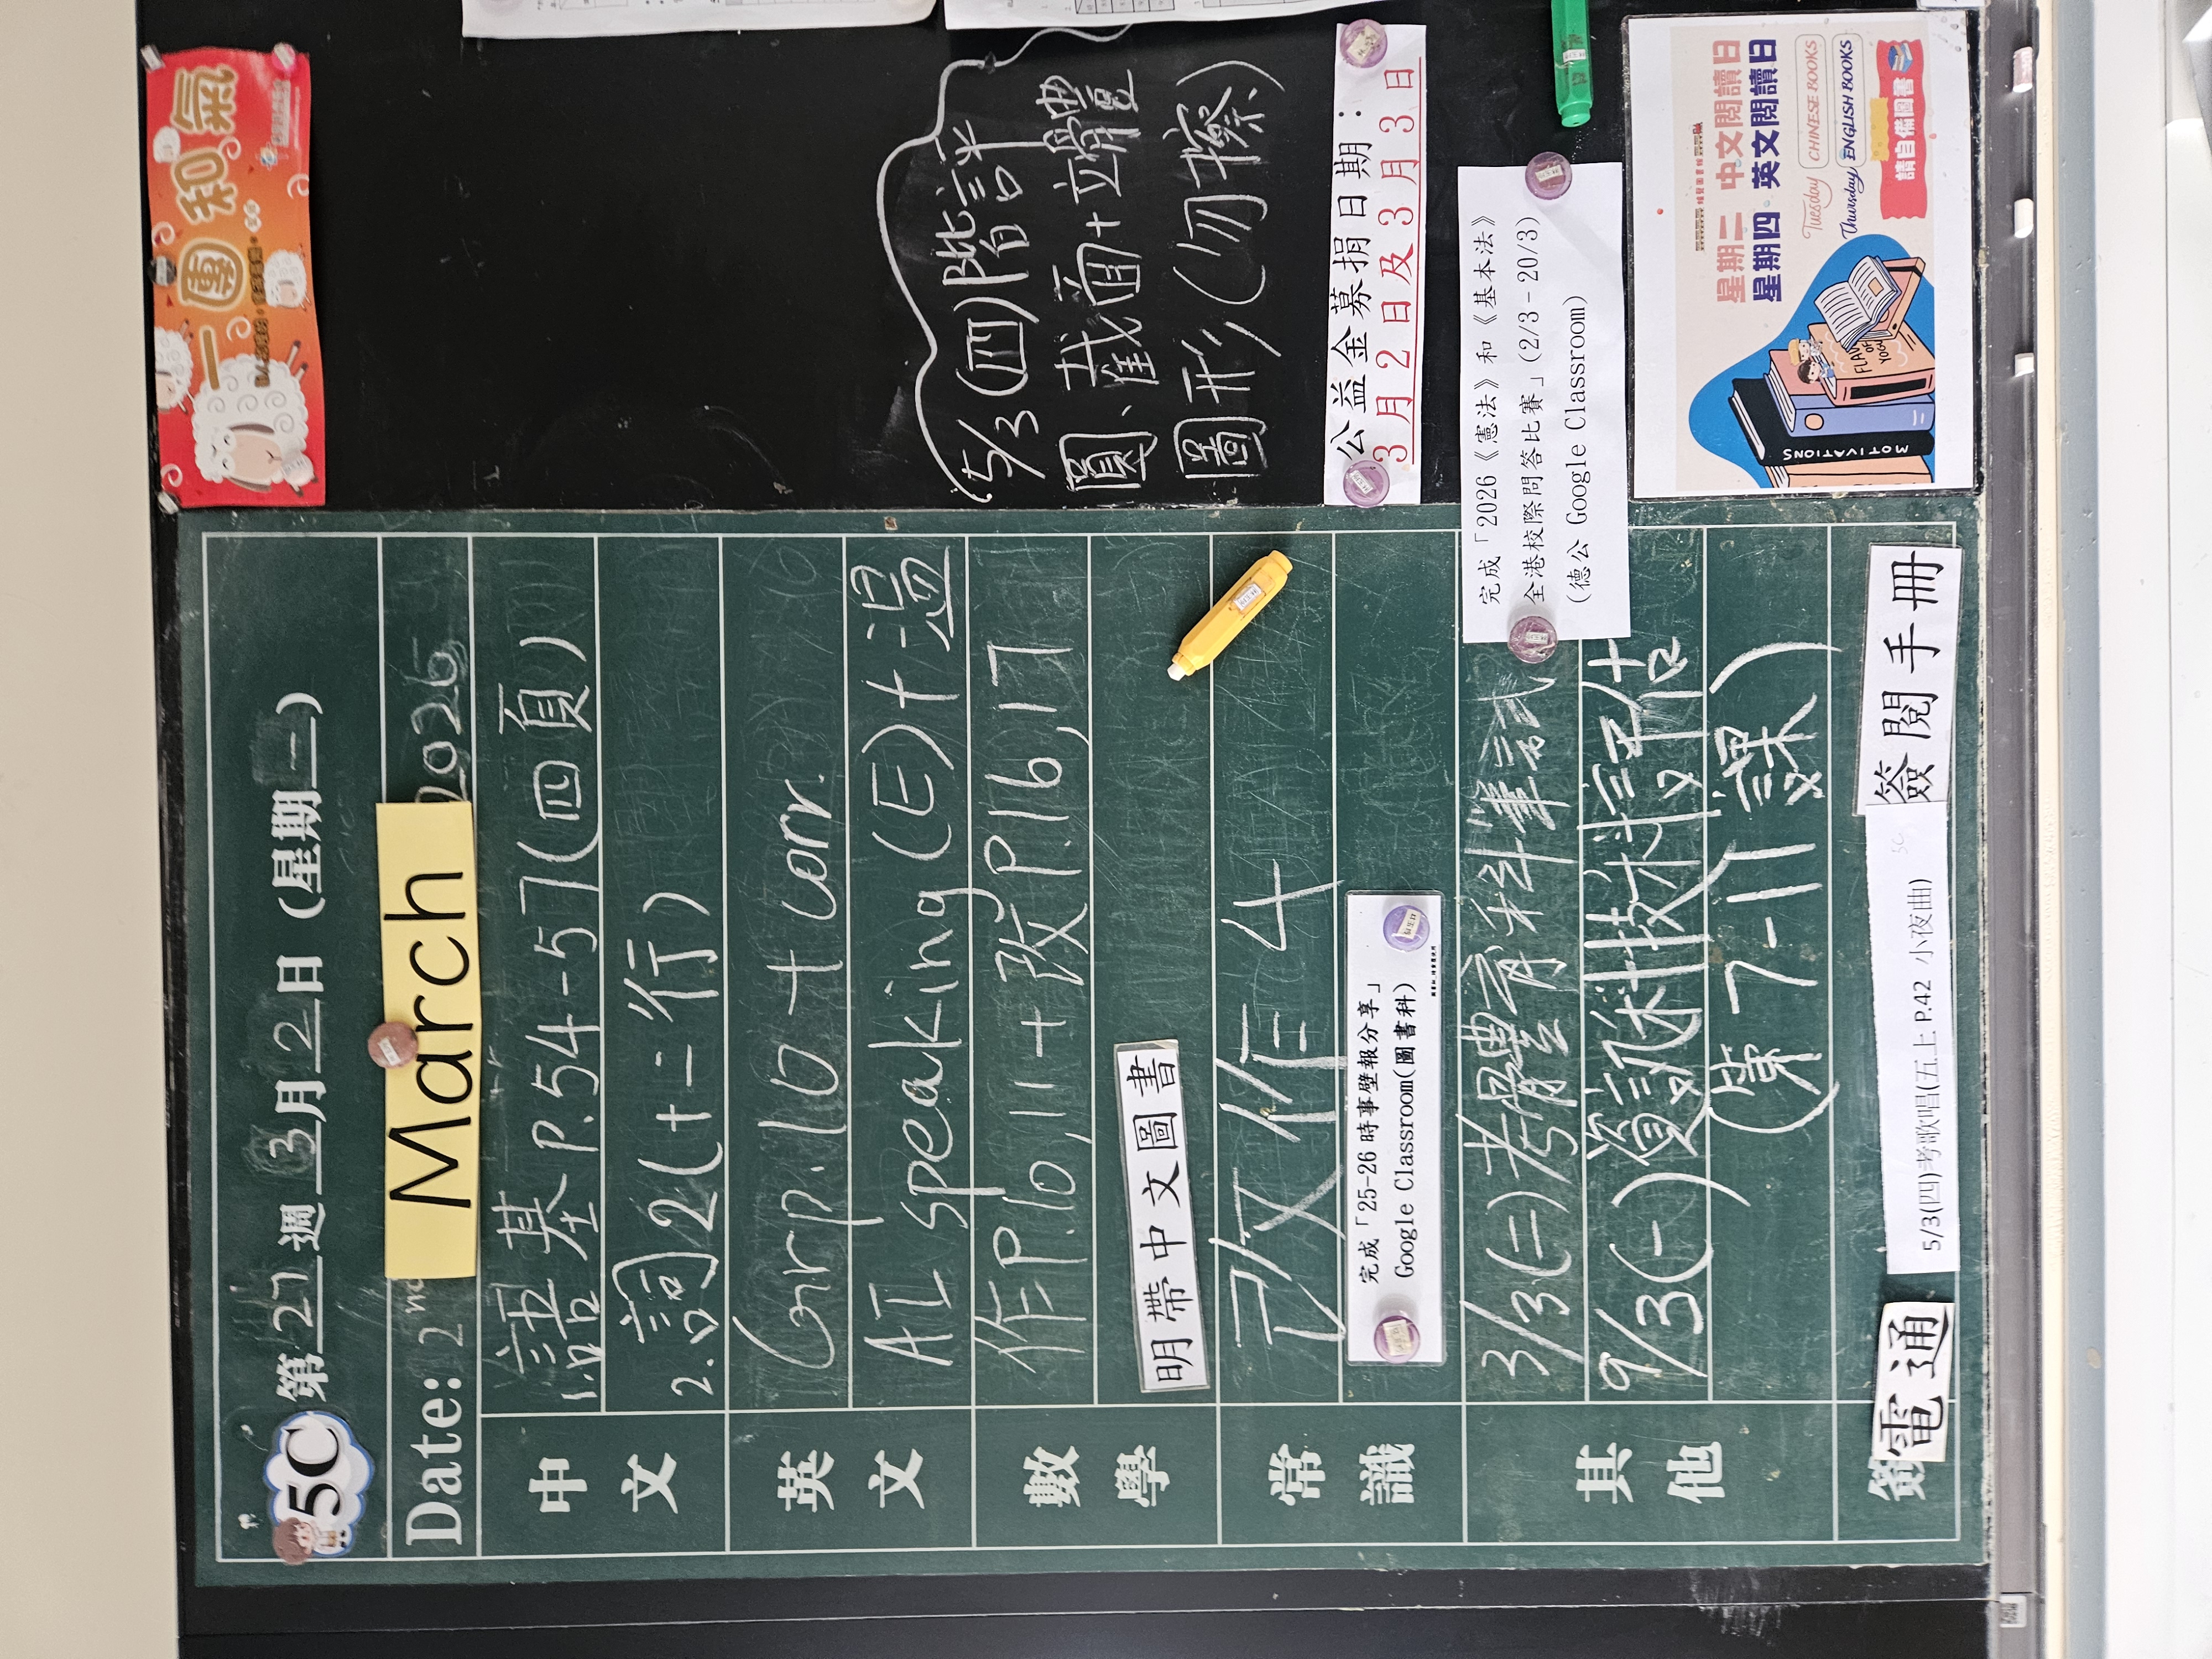 5C 第27週3月2日(星期一)
Date: 2nd March 2026
中文
1.語基P.54-57(四頁)
2.詞2(十二行)
英文
Grp.10+Corr.
AI speaking(E)+溫
數學
作P.10,11+改P.16,17
明帶中文圖書
常識
作4
完成「25-26時事壁報分享」
Google Classroom(圖書科)
其他
3/3(二)考體育科筆試
9/3(一)資訊科技科評估
(第7-11課)
電通
5/3(四)考歌唱(五上 P.42 小夜曲)
5C
簽閱手冊
一團和氣
5/3(四)階評
圓、截面+立體
圖形(勿擦)
公益金募捐日期：
3月2日及3月3日
完成「2026《憲法》和《基本法》
全港校際問答比賽」(2/3-20/3)
(德公 Google Classroom)
星期二 中文閱讀日
星期四 英文閱讀日
Tuesday CHINESE BOOKS
Thursday ENGLISH BOOKS
請自備圖書
MOTIVATIONS